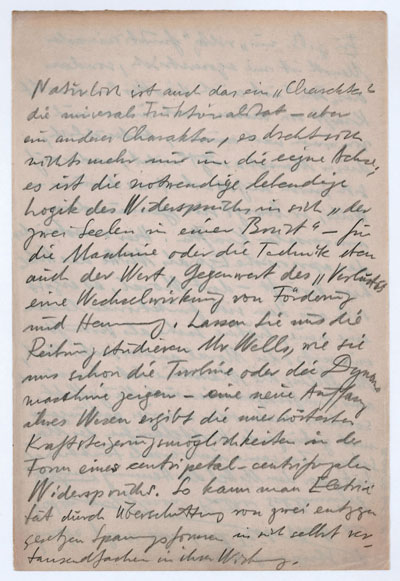 Natürlich ist auch das ein „Charakter“
die universale Funktionalität – aber
ein anderer Charakter, es dreht sich
nichts mehr nur um die eigne Achse,
es ist die notwendige lebendige
Logik des Widerspruchs in sich „der
zwei Seelen in einer Brust“ – für
die Maschine oder die Technik
auch der Wert, Gegenwert des „Verlustes
eine Wechselwirkung von Förderung
und Hemmung. Lassen Sie uns die
Reibung studieren Mr Wells, wie sie
uns schon die Turbine oder die Dynamo
maschine zeigen – eine neue Auffassg
ihres Wesens ergibt die unerhörtesten
Kraftsteigerungsmöglichkeiten in der
Form eines centripetal-centrifugalen
Widerspruchs. So kann man Electrizi
tät durch Überschüttung von zwei entgegen
gesetzten Spannungsformen in sich selbst ver-
tausendfachen in ihrer Wirkung.